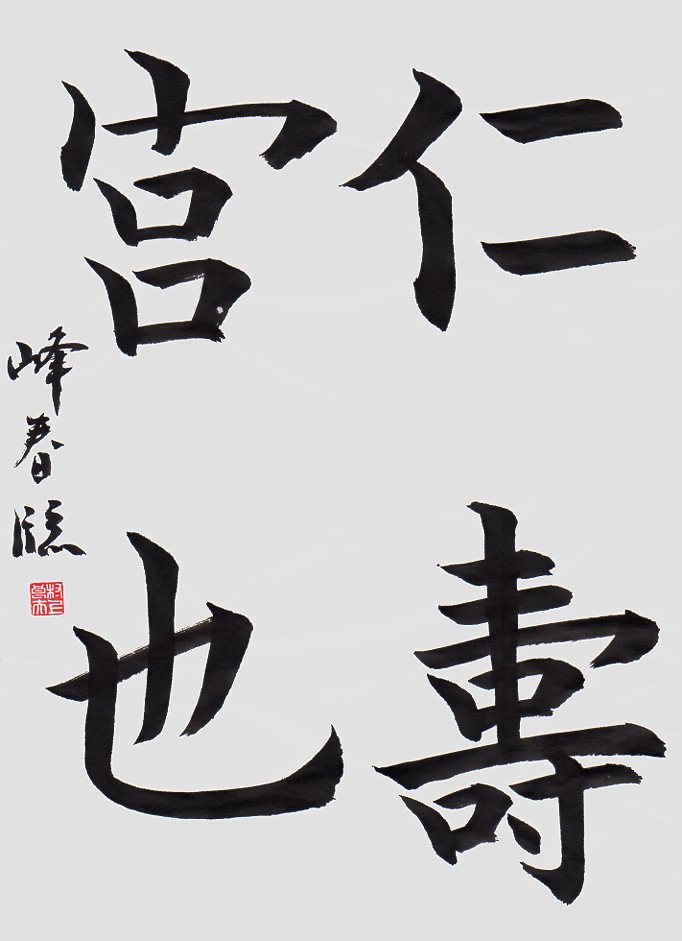 仁壽
宮也
峰春臨